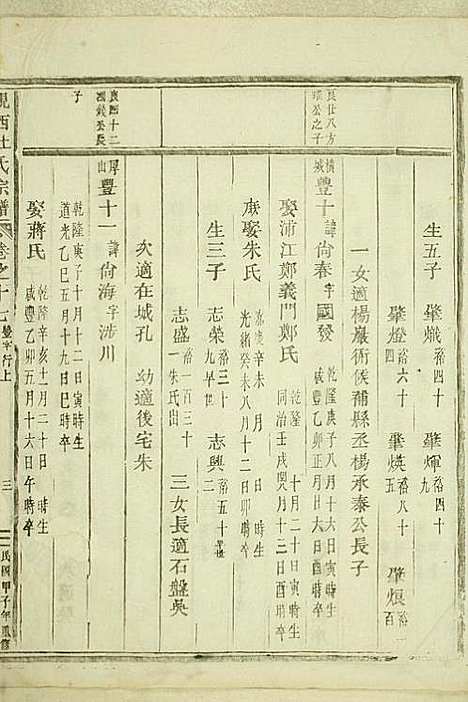 生五子 肇熾裕四十 肇煇裕四十九
肇燈裕六十四 肇煐裕八十五 肇烺裕一百
一女適楊巖術候補縣丞楊承泰公長子
良仕八方
公之子
橫城豐十諱尚春字國發 乾隆庚子八月十六日寅時生
咸豐乙卯正月廿六日卯時卒
娶浦江鄭義門鄭氏 乾隆 十月二十日寅時生
同治壬戌閏八月十三日酉時卒
娶朱氏 嘉慶辛未 月 日 時生
光緒癸未八月十二日卯時卒
生三子 志榮裕三十九早世 志興裕五十二
志盛裕一百三十一朱氏出 三女長適石盤吳
次適在城孔 幼適後宅朱
良四十二
公長
子
厚山豐十一諱尚海字涉川
乾隆庚子十月十二日寅時生
道光乙巳五月十九日巳時卒
娶蔣氏 乾隆辛亥十二月二十日 時生
咸豐乙卯五月十六日午時卒
峴西杜氏宗譜 卷之十七 豐字行上 三 民國甲子年重修